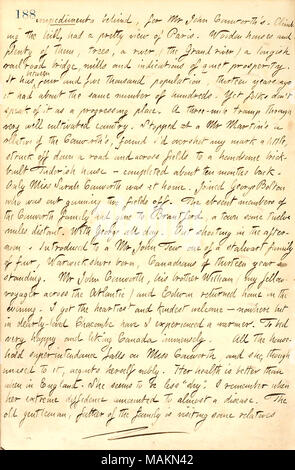 188
impediments behind, for Mr John Conworth's. Climb-
ing the hill, had a pretty view of Paris. Wooden houses and
plenty of them, trees, a river, (the Grand river) a longish
rail road bridge, mills and indications of quiet prosperity.
It has four and five thousand population, thirteen years ago
between
it had about the same number of hundreds. Yet folks don't
speak of it as a progressing place. A three-mile tramp through
very well cultivated country. Stopped at a Mr Martin's a
relative of the Conworth's, found I'd overshot my mark a little,
struck off down a road and across fields to a handsome brick-
built Tudorish house — completed about ten months back.
Only Miss Sarah Conworth was at home. Joined George Bolton
who was out gunning the fields off. The absent members of
the Conworth family had gone to Brantford, a town some twelve
miles distant. With George all day. Out shooting in the after-
noon. Introduced to a Mr John Tew one of a stalwart family
of four, Warwickshire born, Canadians of thirteen years
standing. Mr John Conworth, his brother William, (my fellow-
voyager across the Atlantic) and Edwin returned home in the
evening. I got the heartiest and kindest welcome — nowhere but
in dearly-loved Chacombe have I experienced a warmer. To bed
very happy and liking Canada immensely. All the house-
hold superintendance falls on Miss Conworth and she, though
unused to it, acquits herself nobly. Her health is better than
even in England. She seems to be less "shy". I remember when
her extreme diffidence amounted to almost a disease. The
old gentleman, father of the family is visiting some relatives
alamy
Image ID: MAKN42
www.alamy.com